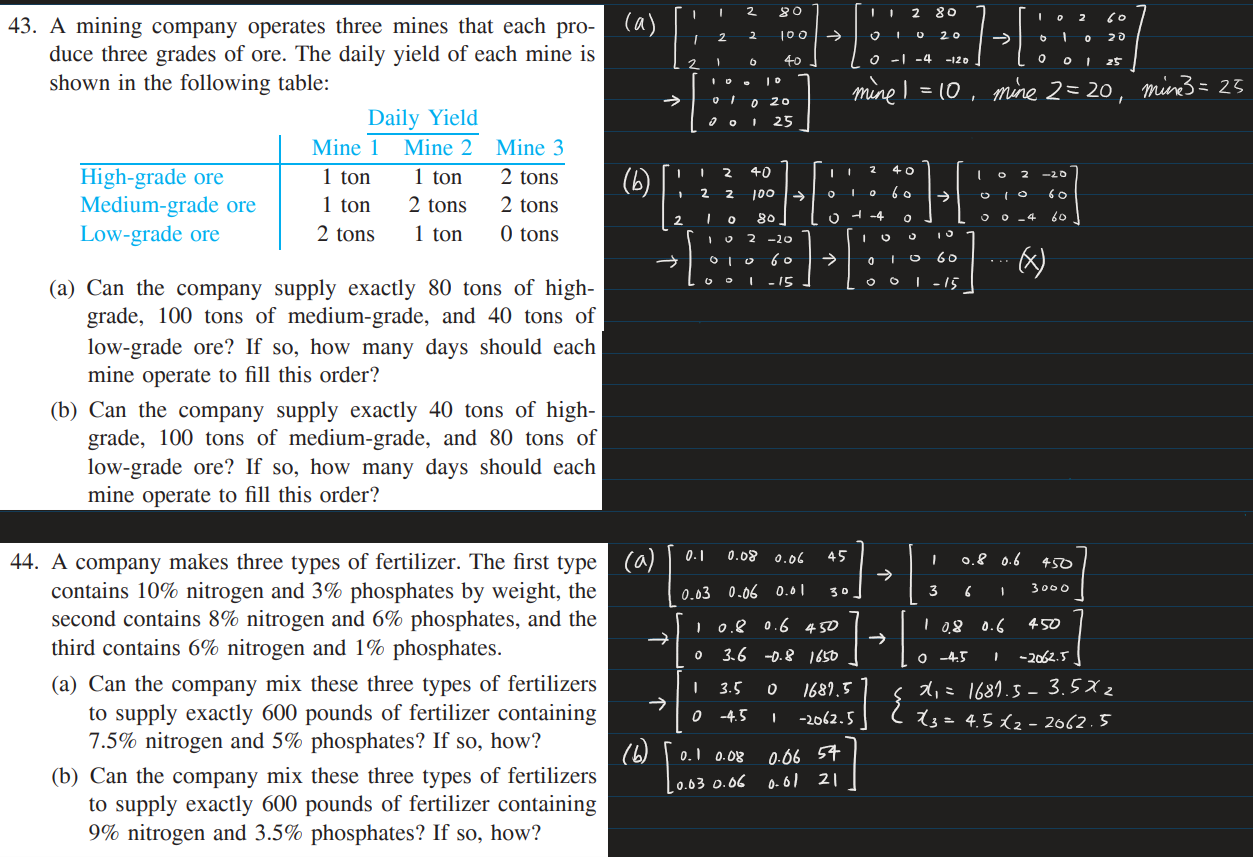 43. A mining company operates three mines that each pro-
duce three grades of ore. The daily yield of each mine is
shown in the following table:
Daily Yield
Mine 1 Mine 2 Mine 3
High-grade ore 1 ton 1 ton 2 tons
Medium-grade ore 1 ton 2 tons 2 tons
Low-grade ore 2 tons 1 ton 0 tons
(a) Can the company supply exactly 80 tons of high-
grade, 100 tons of medium-grade, and 40 tons of
low-grade ore? If so, how many days should each
mine operate to fill this order?
(b) Can the company supply exactly 40 tons of high-
grade, 100 tons of medium-grade, and 80 tons of
low-grade ore? If so, how many days should each
mine operate to fill this order?
(a) [1 1 2 80 → [1 1 2 80 → [1 0 2 60
1 2 2 100 0 1 0 20 0 1 0 20
2 1 0 40] 0 -1 -4 -120] 0 0 1 25]
→ [1 0 0 10
0 1 0 20
0 0 1 25]
mine 1 = 10, mine 2 = 20, mine 3 = 25
(b) [1 1 2 40 → [1 1 2 40 → [1 0 2 -20
1 2 2 100 0 1 0 60 0 1 0 60
2 1 0 80] 0 -1 -4 0] 0 0 -4 60]
→ [1 0 2 -20 → [1 0 0 10
0 1 0 60 0 1 0 60 ... (x)
0 0 1 -15] 0 0 1 -15]
44. A company makes three types of fertilizer. The first type
contains 10% nitrogen and 3% phosphates by weight, the
second contains 8% nitrogen and 6% phosphates, and the
third contains 6% nitrogen and 1% phosphates.
(a) Can the company mix these three types of fertilizers
to supply exactly 600 pounds of fertilizer containing
7.5% nitrogen and 5% phosphates? If so, how?
(b) Can the company mix these three types of fertilizers
to supply exactly 600 pounds of fertilizer containing
9% nitrogen and 3.5% phosphates? If so, how?
(a) [0.1 0.08 0.06 45 → [1 0.8 0.6 450
0.03 0.06 0.01 30] 3 6 1 3000]
→ [1 0.8 0.6 450 → [1 0.8 0.6 450
0 3.6 -0.8 1650] 0 -4.5 1 -2062.5]
→ [1 3.5 0 1687.5 { x₁ = 1687.5 - 3.5x₂
0 -4.5 1 -2062.5] x₃ = 4.5x₂ - 2062.5
(b) [0.1 0.08 0.06 54
0.03 0.06 0.01 21]